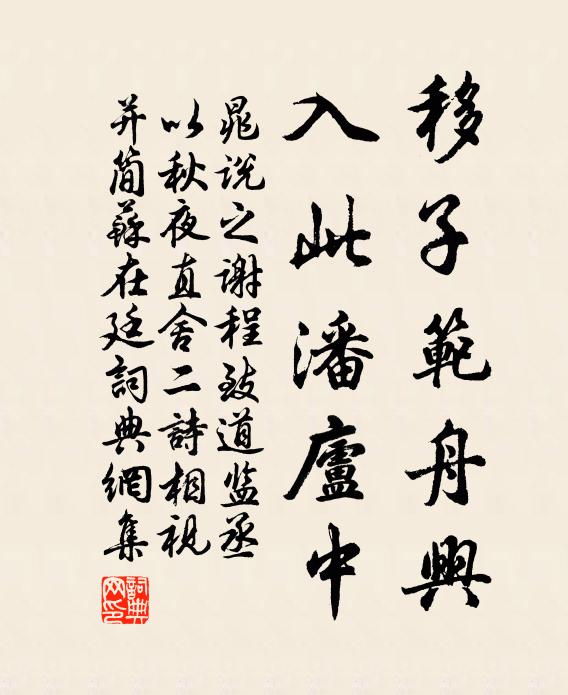 移子範舟興
入此潘廬中
晁说之谢程致道监丞
以秋夜直舍二詩相視
并简蘇在廷詞典網集
詞典網印